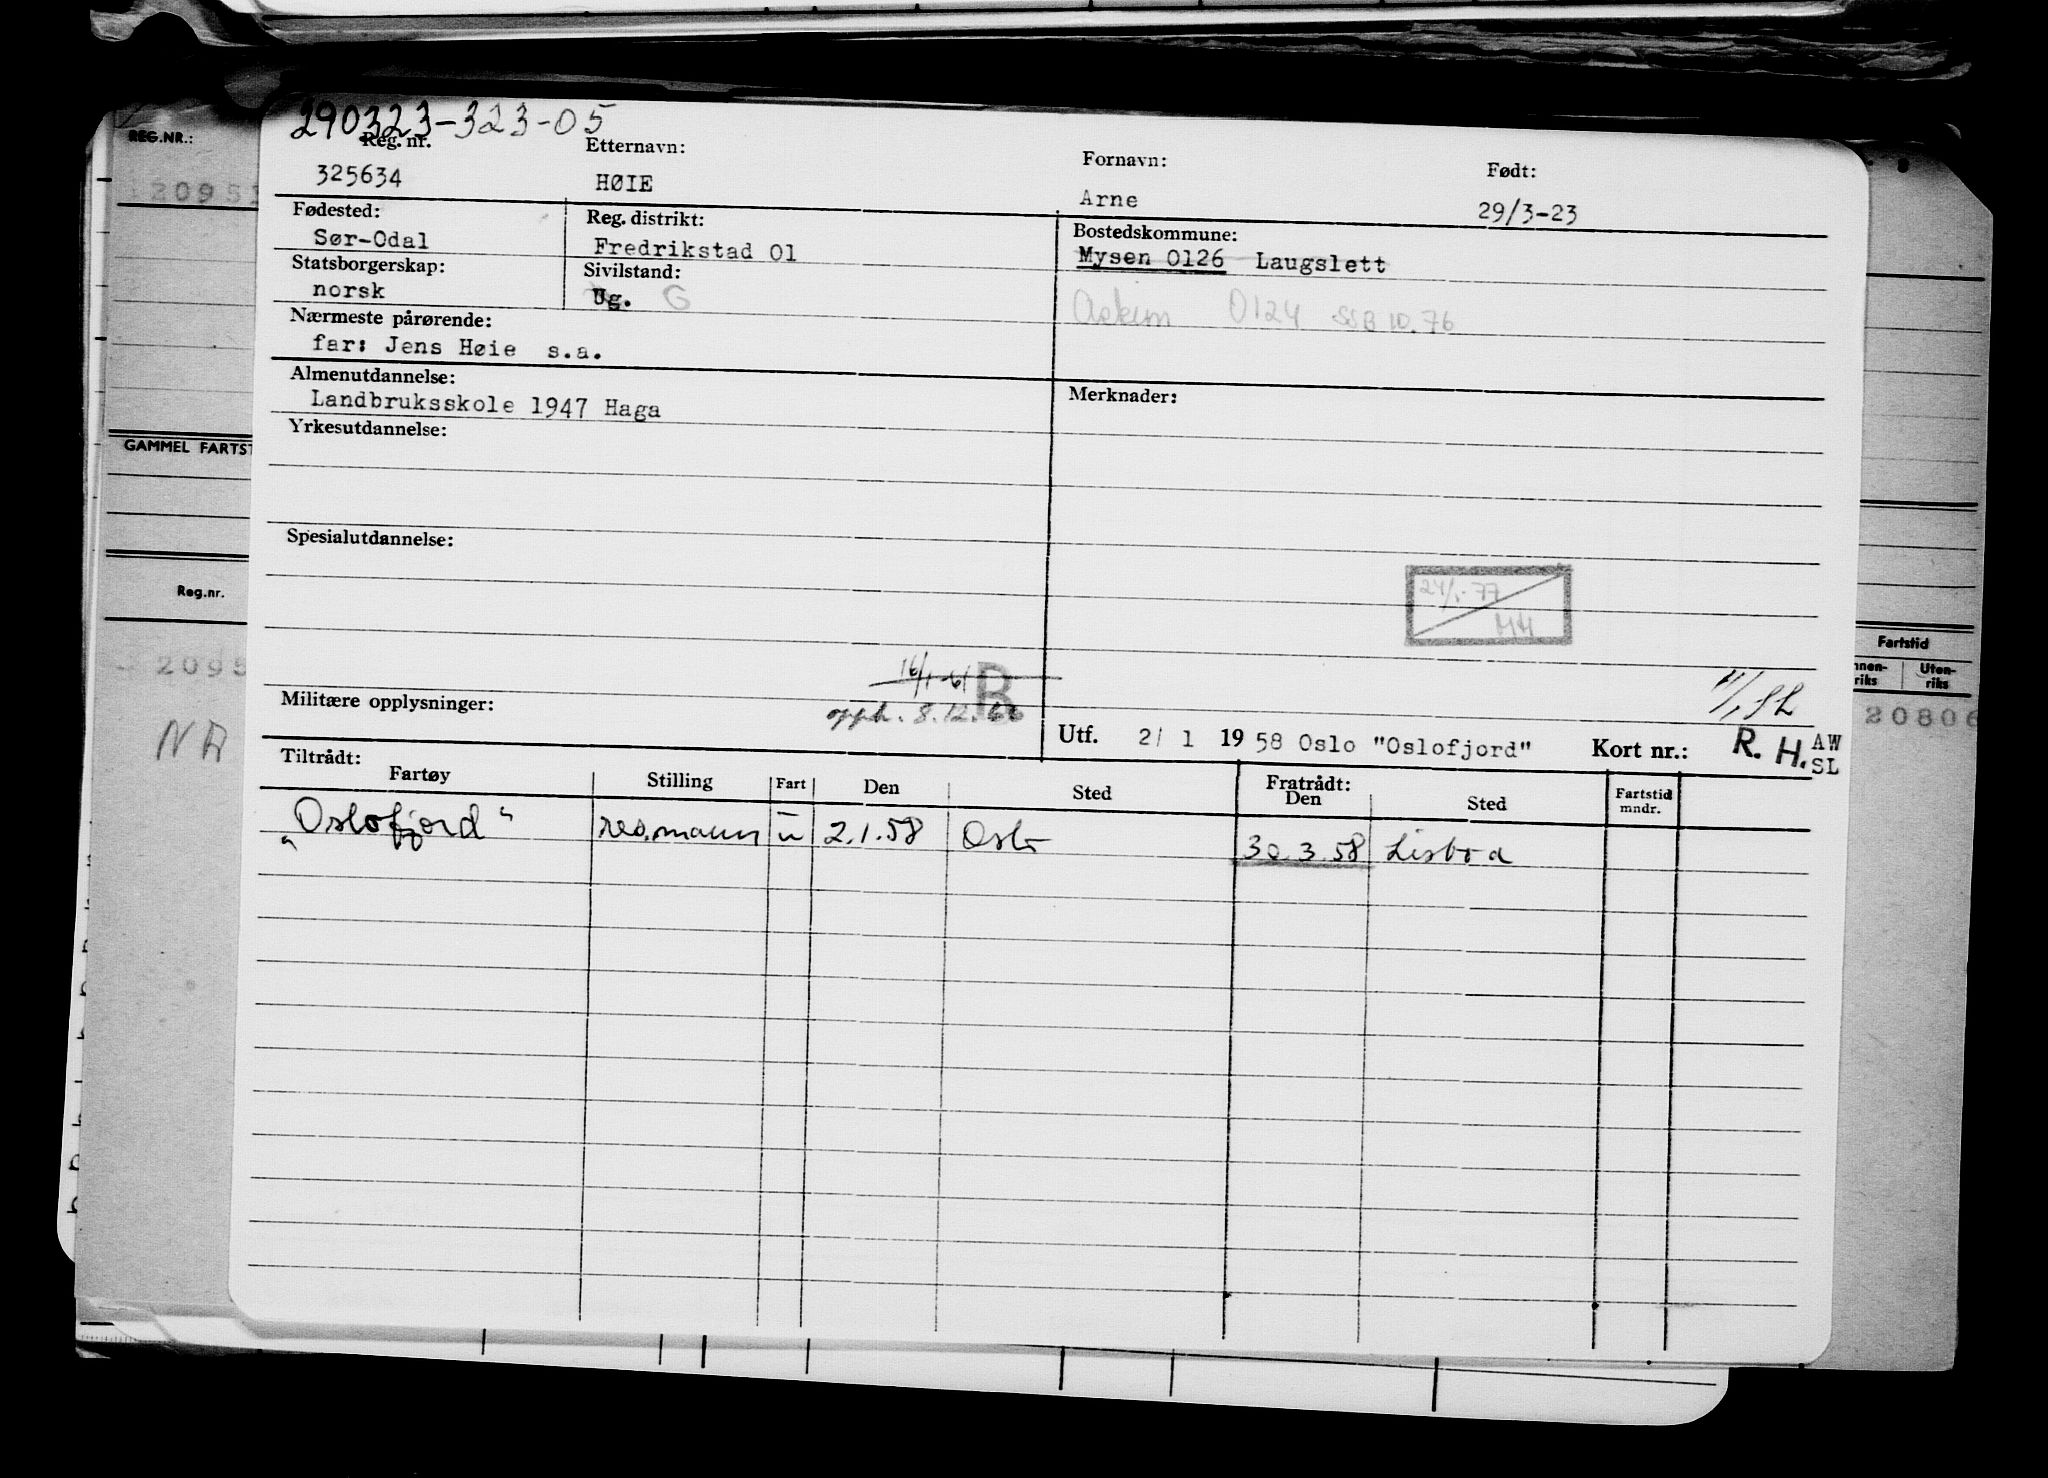 290323-323-05
REG.NR.:
Reg. nr.
Etternavn:
Fornavn:
Født:
325634
HØIE
Arne
29/3-23
Fødested:
Reg. distrikt:
Bostedskommune:
Sør-Odal
Fredrikstad 01
Mysen 0126 Laugslett
Statsborgerskap:
Sivilstand:
norsk
Ug. G
Askim 0124 SSB 10.76
Nærmeste pårørende:
far: Jens Høie s.a.
Almenutdannelse:
Merknader:
Landbruksskole 1947 Haga
Yrkesutdannelse:
GAMMEL FARTST
Spesialutdannelse:
Reg.nr.
24/1-77
MH
Fartstid
Uten-
riks
16/1-61
B
Militære opplysninger:
opph. 8.12.66
20806
NA
Utf. 2/ 1 1958 Oslo "Oslofjord" Kort nr.: R. H. AW
SL
Tiltrådt:
Fartøy
Stilling
Fart
Den
Sted
Fratrådt:
Den
Sted
Fartstid
mndr.
"Oslofjord" res.mann u 2.1.58 Oslo 30.3.58 Lisboa